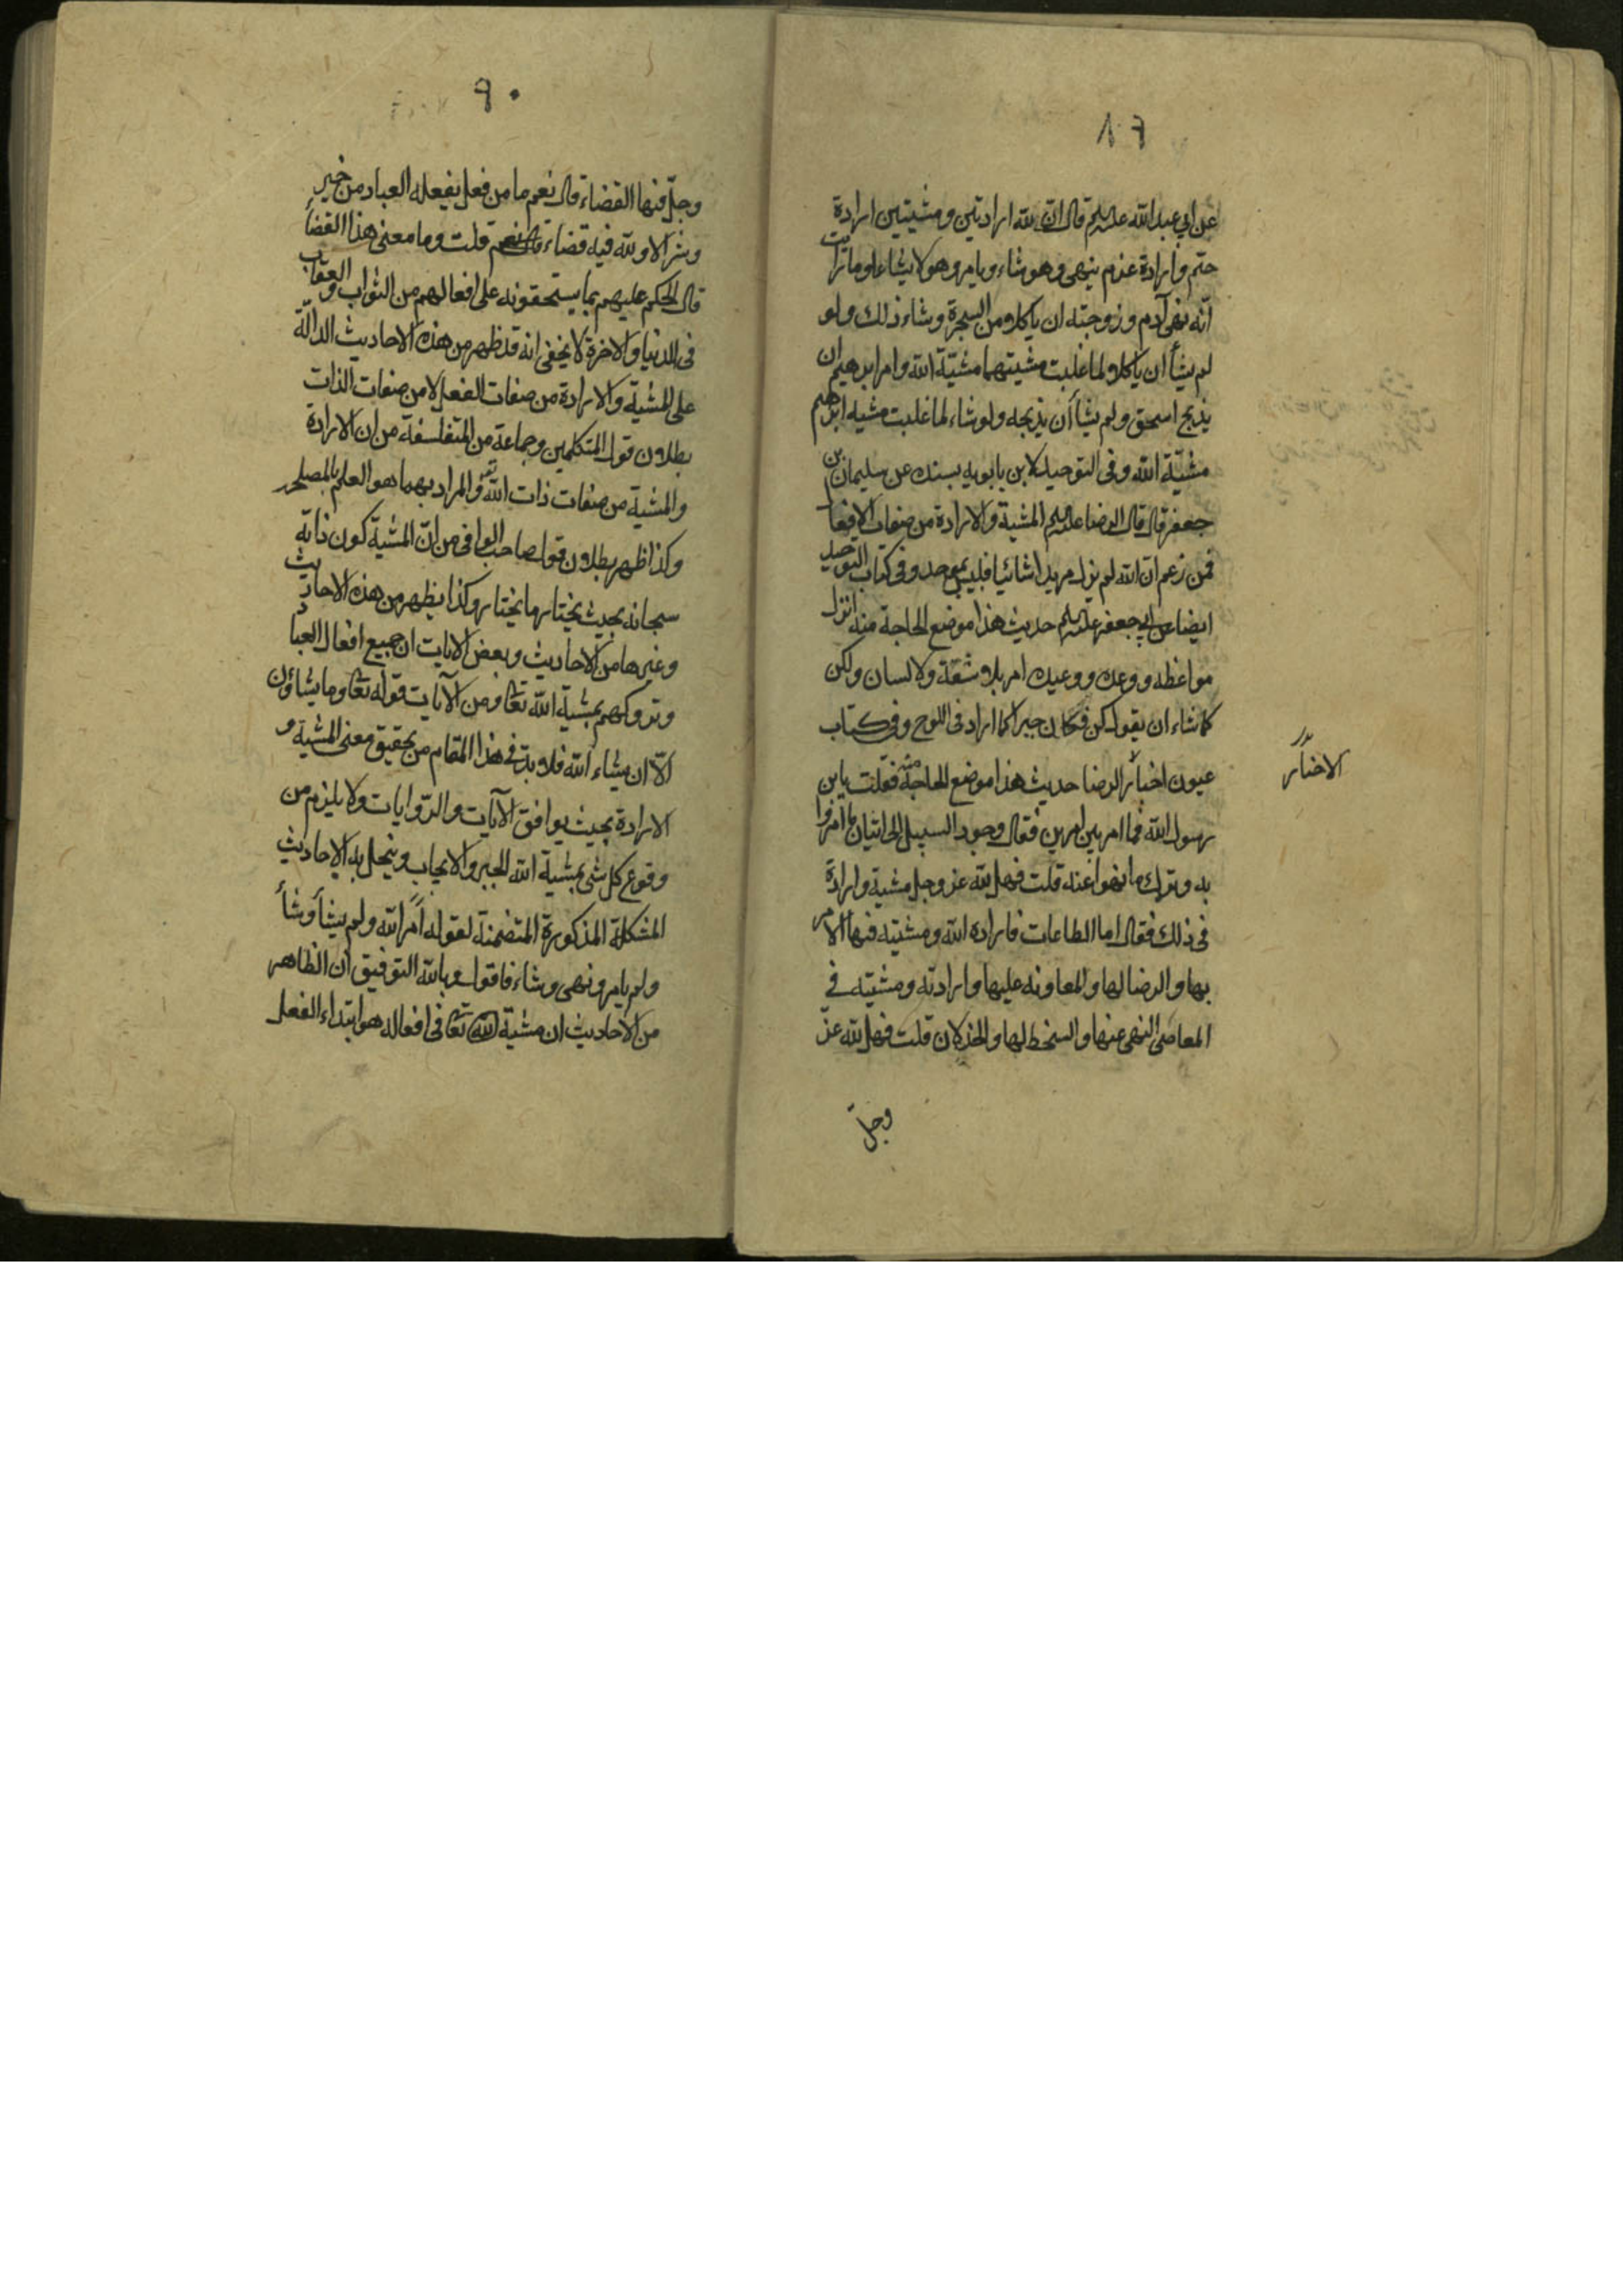 عن ابي عبد الله عليه السلم قال ان لله ارادتين ومشيتين ارادة
حتم وارادة عزم ينهى وهو يشاء ويامر وهو لا يشاء اوما رايت
انه نهى آدم وزوجته ان ياكلا من الشجرة وشاء ذلك ولو
لم يشأ ان ياكلا لما غلبت مشيتهما مشيّة الله وامر ابرهيم ان
يذبح اسحق ولم يشأ أن يذبحه ولو شاء لما غلبت مشيه ابرهيم
مشيّة الله وفى التوحيد لابن بابويه بسنده عن سليمان بن
جعفر قال قال الرضا عليه السلم المشية والارادة من صفات الافعال
فمن زعم ان الله لم يزل مريدا شائيا فليس بموحد وفى كتاب التوحيد
ايضا عن ابي جعفر عليه السلم حديث هذا موضع الحاجة منه انزل
مواعظه ووعده ووعيده امر بلا شفة ولا لسان ولكن
كما شاء ان يقول كن فكان خبرا كما اراد فى اللوح وفى كتاب
عيون اخبار الرضا حديث هذا موضع الحاجة منه فقلت يابن
رسول الله فما امر بين امرين فقال وجود السبيل الى اتيان ما امروا
به وترك ما نهوا عنه قلت فهل لله عز وجل مشية وارادة
فى ذلك فقال اما الطاعات فارادة الله ومشيته فيها الامر
بها والرضا لها والمعاونه عليها وارادته ومشيته فى
المعاصى النهى عنها والسخط لها والخذلان قلت فهل لله عزّ
وجلّ
الاخبار
٩٠
وجلّ فيها القضاء قال نعم ما من فعل يفعله العباد من خير
وشر الا ولله فيه قضاء قال نعم قلت وما معنى هذا القضاء
قال الحكم عليهم بما يستحقونه على افعالهم من الثواب والعقاب
فى الدنيا والاخرة لا يخفى انه قد ظهر من هذه الاحاديث الدالّة
على المشية والارادة من صفات الفعل لا من صفات الذات
بطلان قول المتكلمين وجماعة من المتفلسفة من ان الارادة
والمشية من صفات ذات الله تع والمراد بهما هو العلم بالمصلحة
وكذا ظهر بطلان قول صاحب الوافى من انّ المشيّة كون ذاته
سبحانه بحيث يختار ما يختار وكذا يظهر من هذه الاحاديث
وغيرها من الاحاديث وبعض الايات ان جميع افعال العباد
وتروكهم بمشية الله تعا ومن الآيات قوله تعا وما يشاؤن
الاّ ان يشاء الله فلا بدّ فى هذا المقام من تحقيق معنى المشية و
الارادة بحيث يوافق الآيات والرّوايات ولا يلزم من
وقوع كل شى بمشية الله الجبر والايجاب وينحل به الاحاديث
المشكلة المذكورة المتضمنة لقوله امر الله ولم يشأ وشأ
ولم يامر ونهى وشاء فاقول وبالله التوفيق ان الظاهر
من الاحاديث ان مشية الله تعا فى افعاله هو ابتداء الفعل